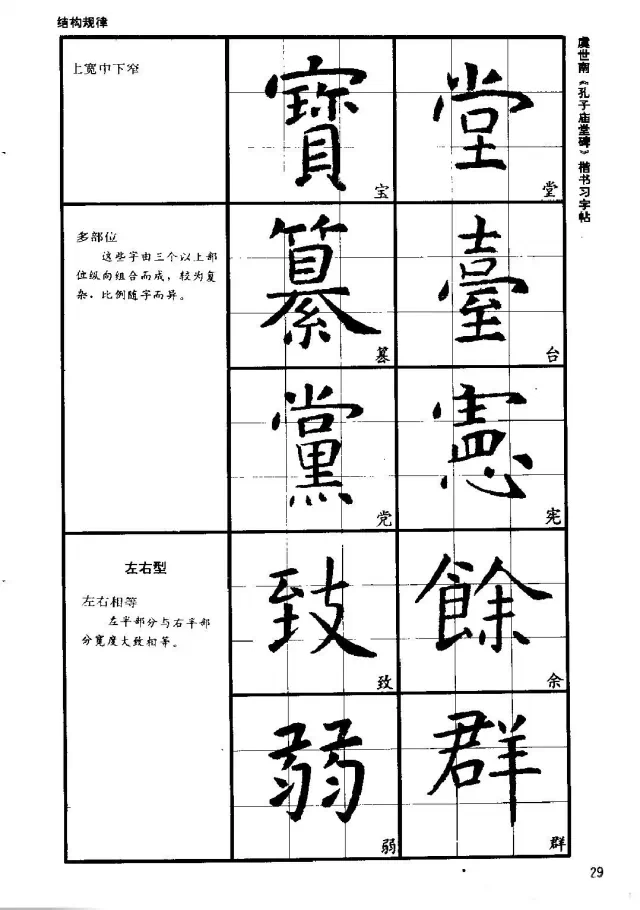 结构规律
虞世南《孔子庙堂碑》楷书习字帖
上宽中下窄
寶
宝
堂
堂
多部位
这些字由三个以上部
位纵向组合而成，较为复
杂，比例随字而异。
篡
臺
台
黨
党
憲
宪
左右型
左右相等
左半部分与右半部
分宽度大致相等。
致
致
餘
余
弱
弱
群
群
29